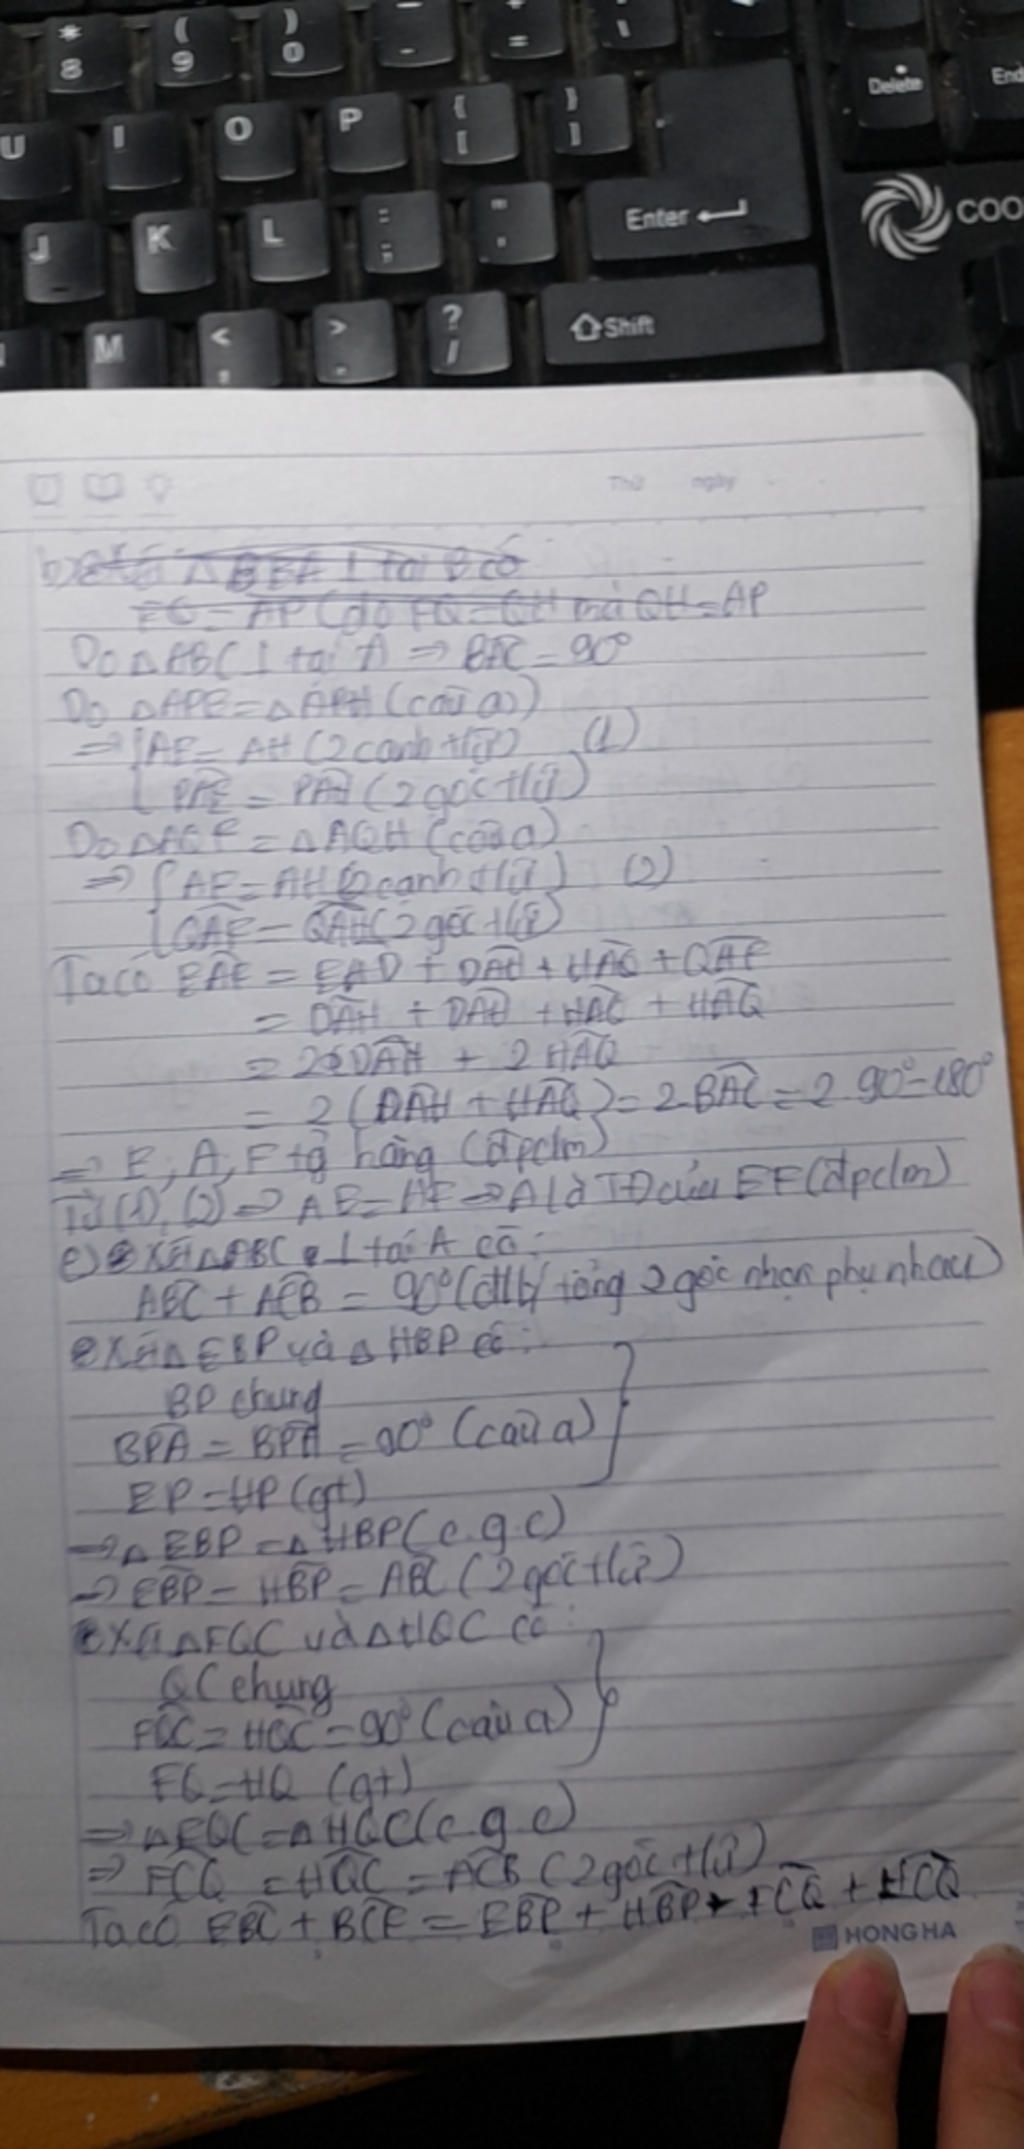 * ( ) _ +
8 9 0 - = \
Delete End
U I O P { [ } ]
J K L : ; " ' Enter
COO
M < , > . ? / Shift
Thứ ngày
b) Xét △ BEA ⊥ tại B có
FQ = AP (do FQ = QH mà QH = AP
Do △ABC ⊥ tại A ⇒ BAC = 90°
Do △APE = △APH (câu a)
⇒ { AE = AH (2 cạnh t/ứ) (1)
PAE = PAH (2 góc t/ứ)
Do △AQF = △AQH (câu a)
⇒ { AF = AH (2 cạnh t/ứ) (2)
QAF = QAH (2 góc t/ứ)
Ta có EAF = EAD + DAH + HAQ + QAF
= DAH + DAH + HAQ + HAQ
= 2 DAH + 2 HAQ
= 2 (DAH + HAQ) = 2. BAC = 2. 90° = 180°
⇒ E, A, F tg hàng (đpcm)
Từ (1), (2) ⇒ AE = AF ⇒ A là TĐ của EF (đpcm)
c) Xét △ABC ⊥ tại A có:
ABC + ACB = 90° (đ/lý tổng 2 góc nhọn phụ nhau)
Xét △ EBP và △ HBP có:
BP chung
BPA = BPH = 90° (câu a)
EP = HP (gt)
⇒ △ EBP = △ HBP (c.g.c)
⇒ EBP = HBP = ABC (2 góc t/ứ)
Xét △FQC và △HQC có:
QC chung
FQC = HQC = 90° (câu a)
FQ = HQ (gt)
⇒ △FQC = △HQC (c.g.c)
⇒ FCQ = HQC = ACB (2 góc t/ứ)
Ta có EBC + BCF = EBP + HBP + FCQ + HCQ
HONG HA